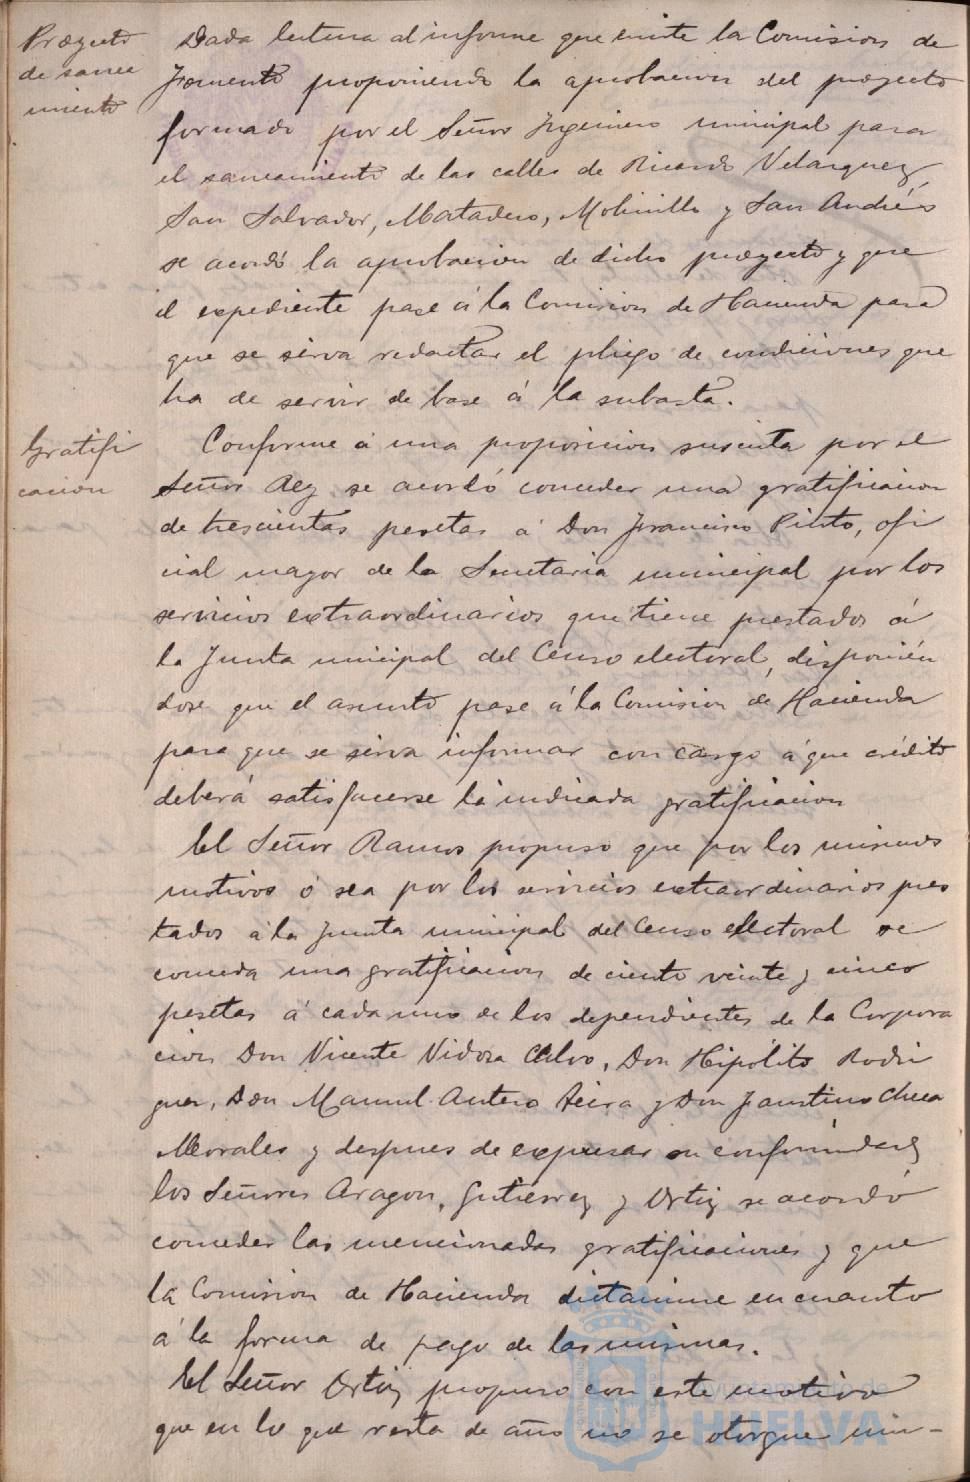 Proyecto
de sanea
miento
Dada lectura al informe que emite la Comision de
Fomento proponiendo la aprobacion del proyecto
formado por el Señor Ingeniero municipal para
el saneamiento de las calles de Ricardo Velazquez,
San Salvador, Matadero, Molinillo y San Andrés
se acordó la aprobacion de dicho proyecto y que
el expediente pase á la Comision de Hacienda para
que se sirva redactar el pliego de condiciones que
ha de servir de base á la subasta.
Gratifi
cacion
Conforme á una proposicion suscrita por el
Señor Rey se acordó conceder una gratificacion
de trescientas pesetas á Don Francisco Pinto, ofi
cial mayor de la Secretaria municipal por los
servicios extraordinarios que tiene prestados á
la Junta municipal del Censo electoral, disponién
dose que el asunto pase á la Comision de Hacienda
para que se sirva informar con cargo á que crédito
deberá satisfacerse la indicada gratificacion
El Señor Ramos propuso que por los mismos
motivos ó sea por los servicios extraordinarios pres
tados á la Junta municipal del Censo electoral se
conceda una gratificacion de ciento veinte y cinco
pesetas á cada uno de los dependientes de la Corpora
cion Don Vicente Vidosa Calvo, Don Hipólito Rodri
guez, Don Manuel Antero Seira y Don Faustino Checa
Morales y despues de expresar su conformidad
los Señores Aragon, Gutierrez y Ortiz se acordó
conceder las mencionadas gratificaciones y que
la Comision de Hacienda dictamine en cuanto
á la forma de pago de las mismas.
El Señor Ortiz propuso con este motivo
que en lo que resta de año no se otorgue nin-
Ayuntamiento de
HUELVA